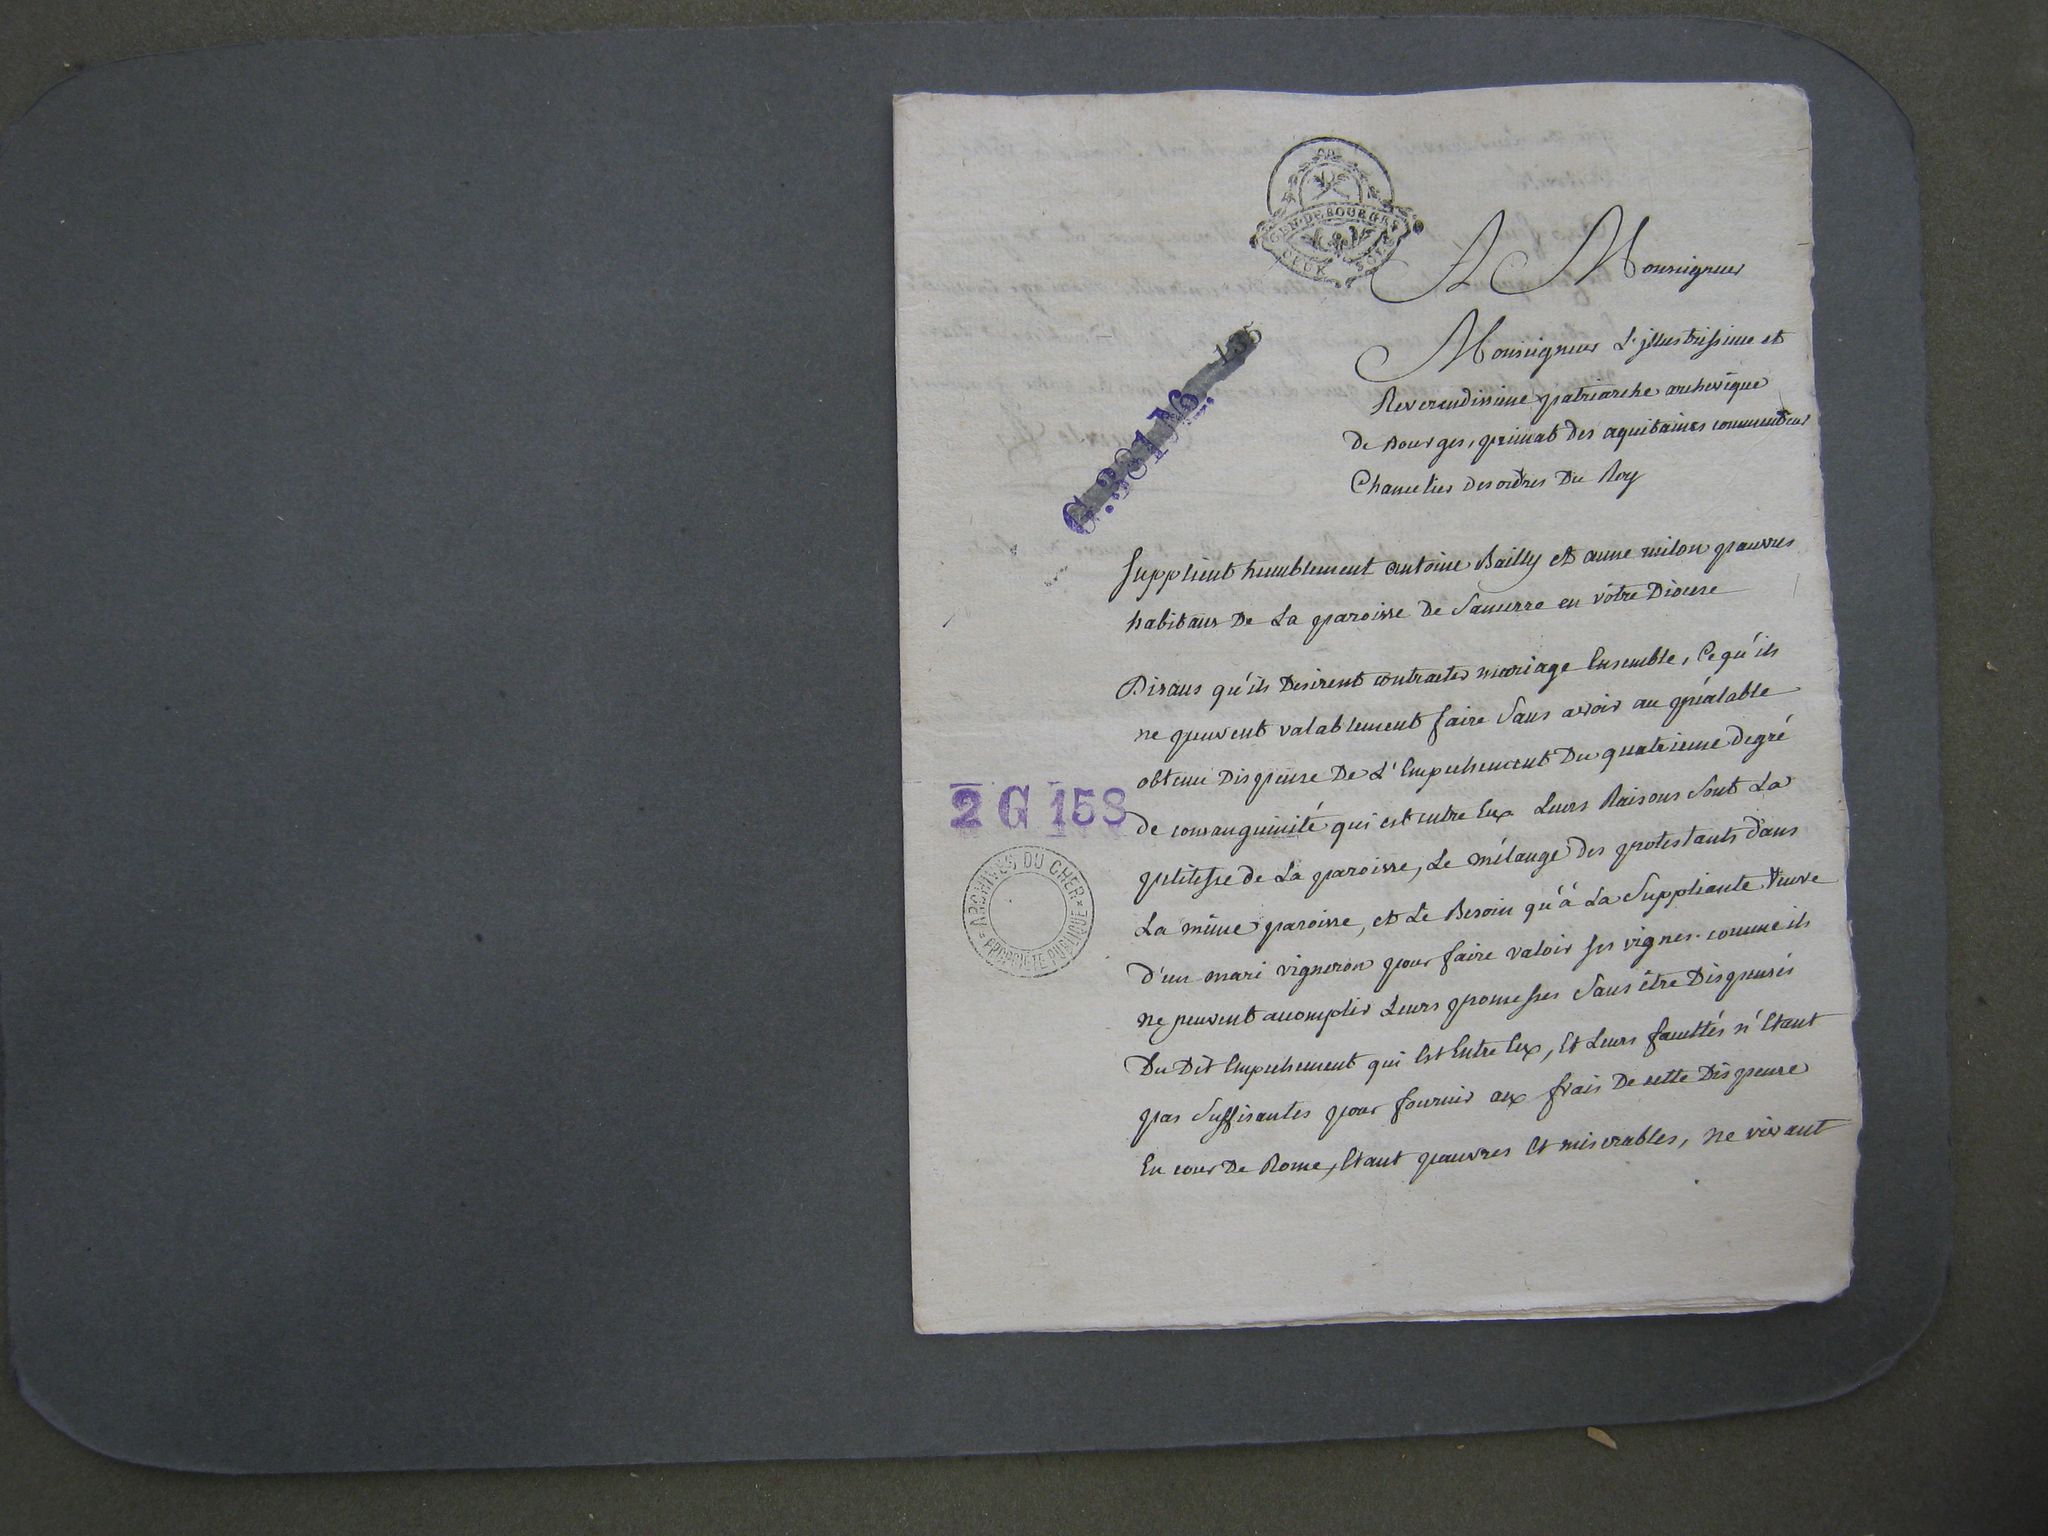 GEN. DE BOURGES
DEUX SOLS
A Monseigneur
Monseigneur L'jllustrissime et
Reverendissime patriarche archevêque
De Bourges, primat des aquitaines commendeur
Chancelier des ordres Du Roy
Supplient humblement antoine Bailly et anne milon pauvres
habitans De La paroisse De Sancerre en vôtre Diocese
Disans qu'ils Desirent contracter mariage Ensemble, Ce qu'ils
ne peuvent valablement faire Sans avoir au préalable
obtenu Dispense De L'Empechement Du quatrieme Degré
de consanguinité qui est entre Eux Leurs Raisons Sont La
petitesse de La paroisse, Le mélange des protestants dans
La même paroisse, et Le Besoin qu'à La Suppliante veuve
d'un mari vigneron pour faire valoir ses vignes. comme ils
ne peuvent accomplir Leurs promesses Sans être Dispensés
Du Dit Empechement qui Est Entre Eux, Et Leurs facultés n'Etant
pas Suffisantes pour fournir aux frais De cette Dispense
En cour De Rome, Etant pauvres Et miserables, ne vivant
2 G 158
ARCHIVES DU CHER
PROPRIETE PUBLIQUE